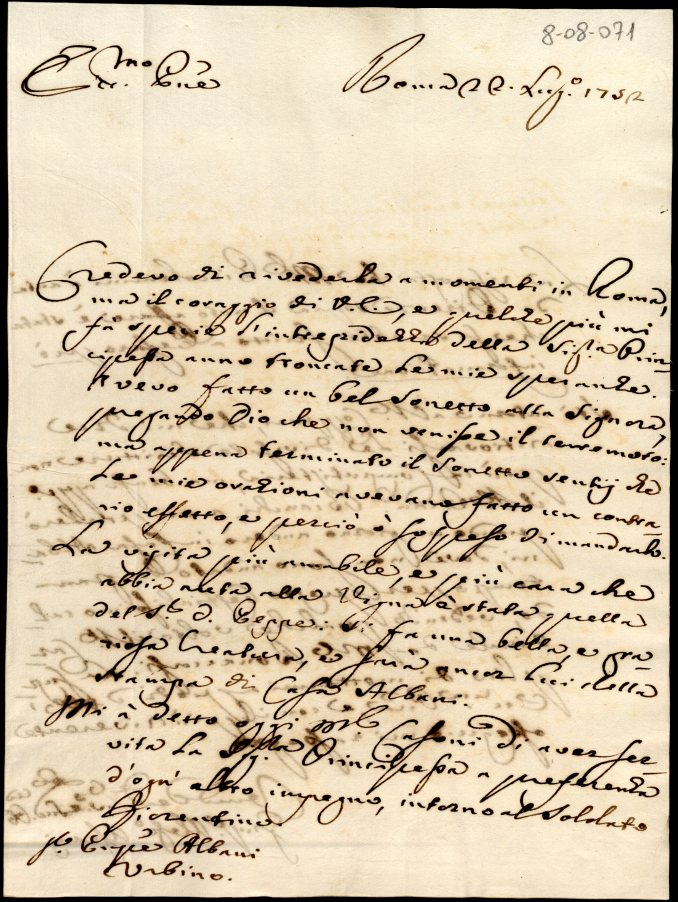 8-08-071
E.mo
Roma 22. Lug.o 1752
Credevo di rivederla a momenti in Roma,
ma il coraggio di V.E., e quelche più mi
fà specie l'intrepidezza della Sig.ra Prin-
cipessa anno troncate le mie speranze.
Avevo fatto un bel Sonetto alla Signora,
pregando Dio che non venisse il terremoto:
ma appena terminato il Sonetto sentij che
le mie orazioni avevano fatto un contra-
rio effetto, e perciò ò sospeso di mandarlo.
La visita più amabile, e più cara che
abbia auta alla Vigna è stata quella
del S.r D. Beppe: si fa una bella, e gra-
ziosa Creatura, e sarà ancor lui della
stampa di Casa Albani.
Mi à detto oggi Casoni di aver ser-
vita la Principessa a preferenza
d'ogn'altro impegno, intorno al Soldato
Fiorentino.
Albani
Urbino.